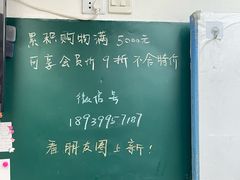 累积购物满 5000元
可享会员价 9折 不含特价
微信号
18939957187
看朋友圈上新!